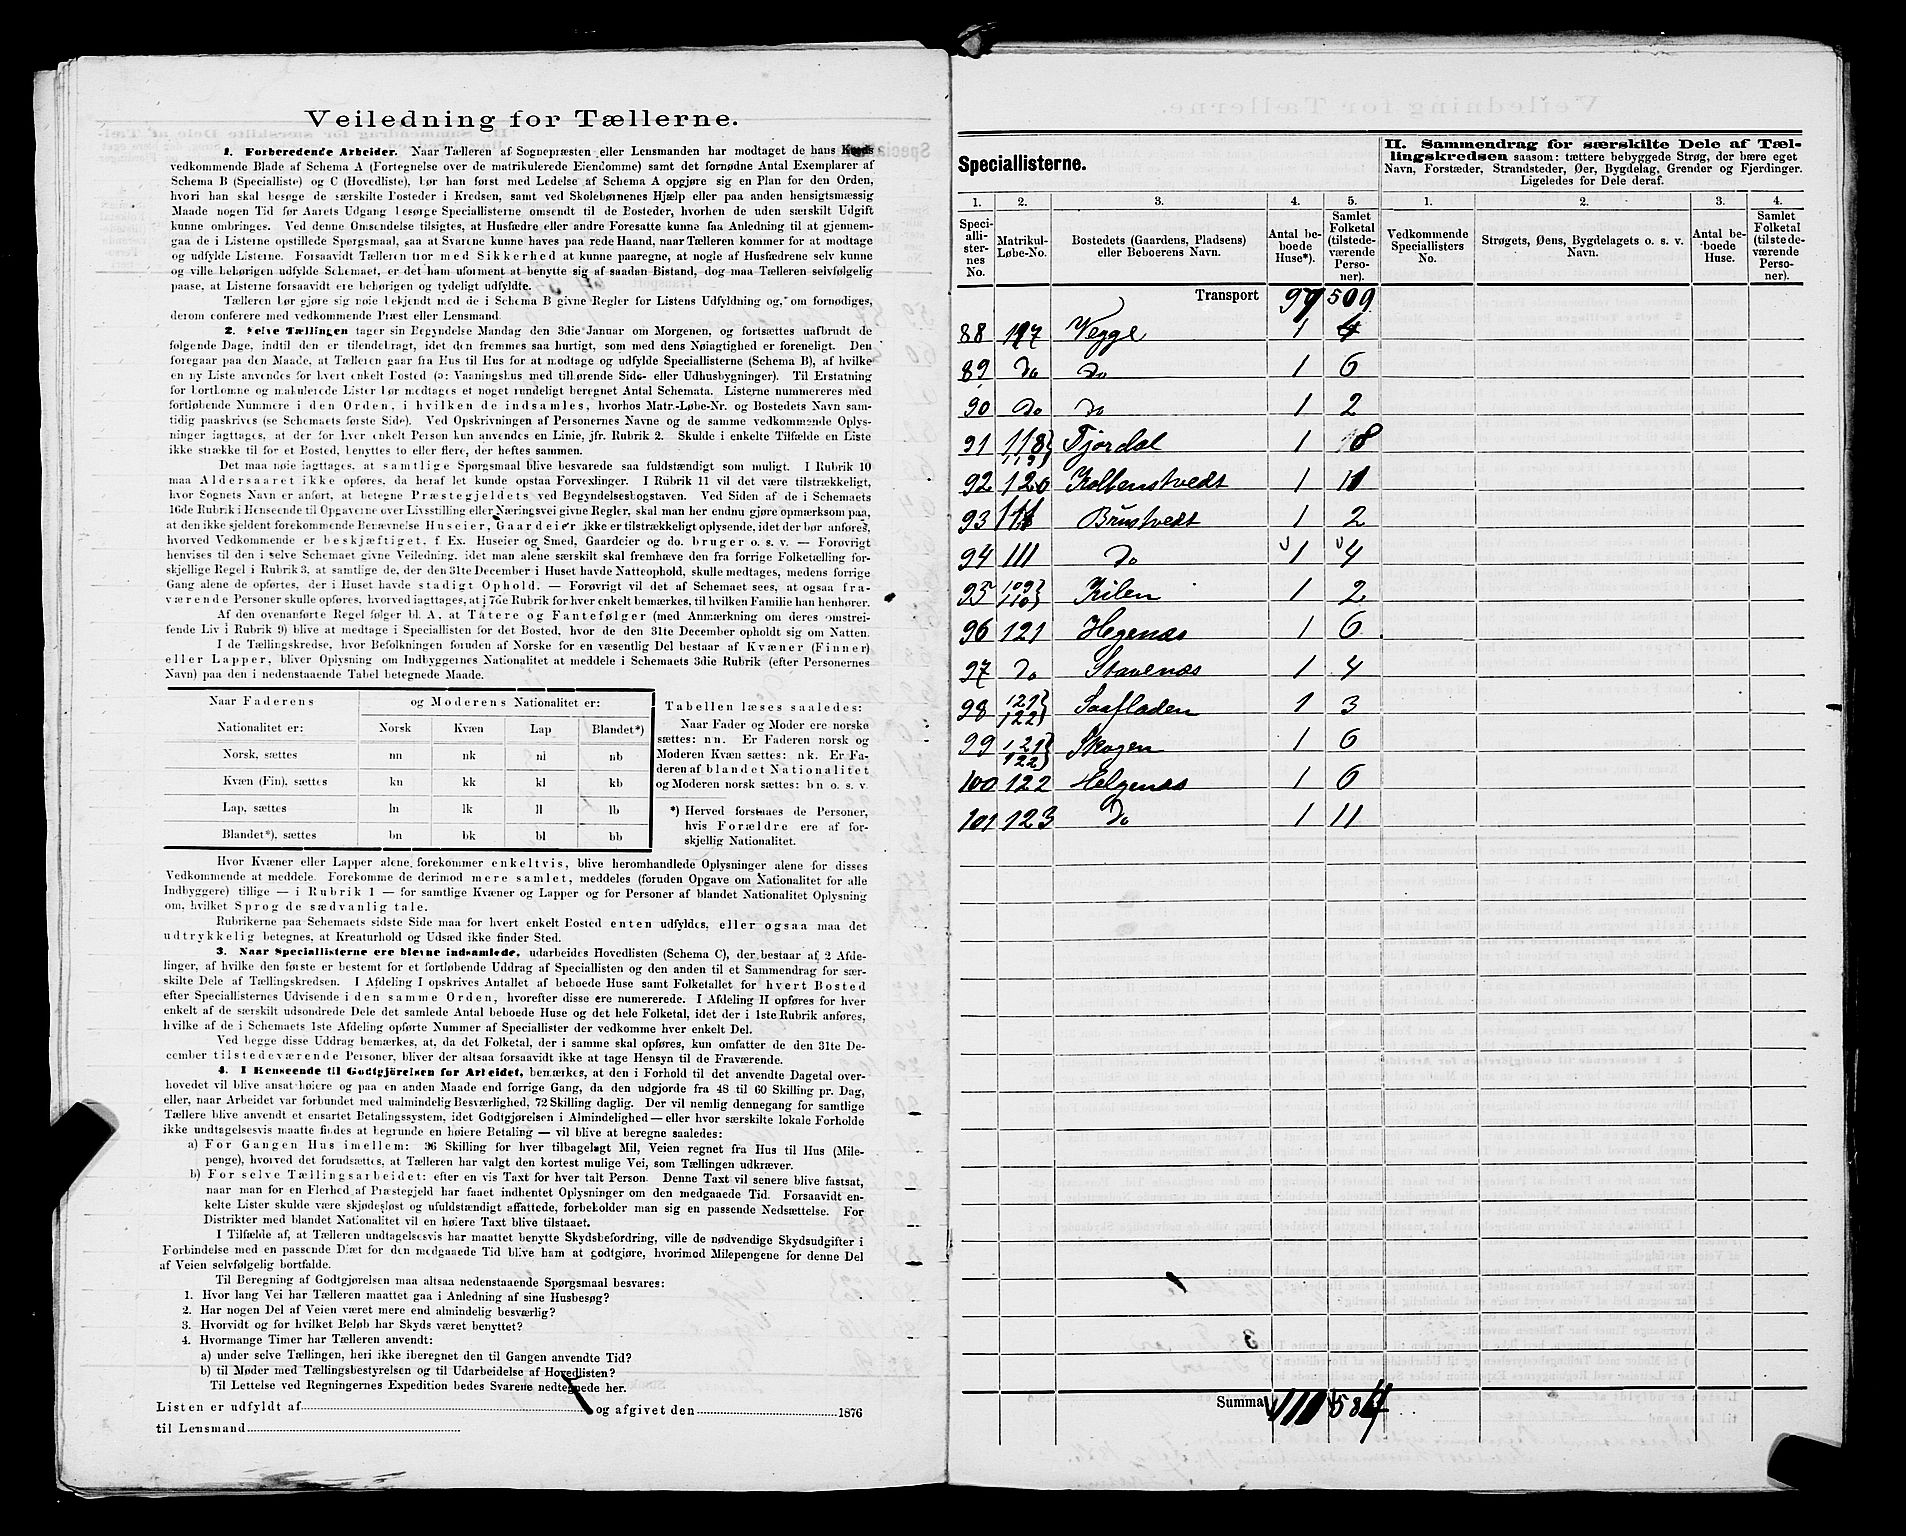 Veiledning for Tællerne.
1. Forberedende Arbeider. Naar Tælleren af Sognepræsten eller Lensmanden har modtaget de hans Kreds
vedkommende Blade af Schema A (Fortegnelse over de matrikulerede Eiendomme) samt det fornødne Antal Exemplarer af
Schema B (Specialliste) og C (Hovedliste), bør han først med Ledelse af Schema A opgjøre sig en Plan for den Orden,
hvori han skal besøge de særskilte Bosteder i Kredsen, samt ved Skolebørnenes Hjælp eller paa anden hensigtsmæssig
Maade nogen Tid før Aarets Udgang besørge Speciallisterne omsendt til de Bosteder, hvorhen de uden særskilt Udgift
kunne ombringes. Ved denne Omsendelse tilsigtes, at Husfædre eller andre Foresatte kunne faa Anledning til at gjennem-
gaa de i Listerne opstillede Spørgsmaal, saa at Svarene kunne haves paa rede Haand, naar Tælleren kommer for at modtage
og udfylde Listerne. Forsaavidt Tælleren tror med Sikkerhed at kunne paaregne, at nogle af Husfædrene selv kunne
og ville behørigen udfylde Schemaet, er det ham uforment at benytte sig af saadan Bistand, dog maa Tælleren selvfølgelig
paase, at Listerne forsaavidt ere behørigen og tydeligt udfyldte.
Tælleren bør gjøre sig nøie bekjendt med de i Schema B givne Regler for Listens Udfyldning og, om fornødiges,
derom conferere med vedkommende Præst eller Lensmand.
2. Selve Tællingen tager sin Begyndelse Mandag den 3die Januar om Morgenen, og fortsættes uafbrudt de
følgende Dage, indtil den er tilendebragt, idet den fremmes saa hurtigt, som med dens Nøiagtighed er foreneligt. Den
foregaar paa den Maade, at Tælleren gaar fra Hus til Hus for at modtage og udfylde Speciallisterne (Schema B), af hvilke
en ny Liste anvendes for hvert enkelt Bosted (ɔ: Vaaningshus med tilhørende Side- eller Udhusbygninger). Til Erstatning
for bortkomne og makulerede Lister bør medtages et noget rundeligt beregnet Antal Schemata. Listerne nummereres med
fortløbende Nummere i den Orden, i hvilken de indsamles, hvorhos Matr.-Løbe-Nr. og Bostedets Navn sam-
tidig paaskrives (se Schemaets første Side). Ved Opskrivningen af Personernes Navne og de samme vedkommende Oplys-
ninger iagttages, at der for hver enkelt Person kun anvendes en Linie, jfr. Rubrik 2. Skulde i enkelte Tilfælde en Liste
ikke strække til for et Bosted, benyttes to eller flere, der heftes sammen.
Det maa nøie iagttages, at samtlige Spørgsmaal blive besvarede saa fuldstændigt som muligt. I Rubrik 10
maa Aldersaaret ikke opføres, da heraf let kunde opstaa Forvexlinger. I Rubrik 11 vil det være tilstrækkeligt,
hvor Sognets Navn er anført, at betegne Præstegjeldets ved Begyndelsesbogstaven. Ved Siden af de i Schemaets
16de Rubrik i Henseende til Opgaverne over Livsstilling eller Næringsvei givne Regler, skal man her endnu gjøre opmærksom paa,
at den ikke sjeldent forekommende Benævnelse Huseier, Gaardeier ikke er tilstrækkeligt oplysende, idet der bør anføres,
hvorved Vedkommende er beskjæftiget, f. Ex. Huseier og Smed, Gaardeier og do. bruger o. s. v. — Forøvrigt
henvises til den i selve Schemaet givne Veiledning, idet man alene særskilt skal fremhæve den fra forrige Folketælling for-
skjellige Regel i Rubrik 3, at samtlige de, der den 31te December i Huset havde Natteophold, skulle medtages, medens forrige
Gang alene de opførtes, der i Huset havde stadigt Ophold. — Forøvrigt vil det af Schemaet sees, at ogsaa fra-
værende Personer skulle opføres, hvorved iagttages, at i 7de Rubrik for hver enkelt bemærkes, til hvilken Familie han henhører.
Af den ovenanførte Regel følger bl. A. at Tatere og Fantefølger (med Anmærkning om deres omstrei-
fende Liv i Rubrik 9) blive at medtage i Speciallisten for det Bosted, hvor de den 31te December opholdt sig om Natten.
I de Tællingskredse, hvor Befolkningen foruden af Norske for en væsentlig Del bestaar af Kvæner (Finner)
eller Lapper, bliver Oplysning om Indbyggernes Nationalitet at meddele i Schemaets 3die Rubrik (efter Personernes
Navn) paa den i nedenstaaende Tabel betegnede Maade.
Naar Faderens og Moderens Nationalitet er:
Nationalitet er: Norsk Kvæn Lap Blandet*)
Norsk, sættes nn nk nl nb
Kvæn (Fin). sættes kn kk kl kb
Lap, sættes ln lk ll lb
Blandet*), sættes bn bk bl bb
Tabellen læses saaledes:
Naar Fader og Moder ere norske
sættes: nn. Er Faderen norsk og
Moderen Kvæn sættes: nk. Er Fa-
deren af blandet Nationalitet
og Moderen norsk sættes: bn o. s. v.
*) Herved forstaaes de Personer,
hvis Forældre ere af for-
skjellig Nationalitet.
Hvor Kvæner eller Lapper alene forekommer enkeltvis, blive heromhandlede Oplysninger alene for disses
Vedkommende at meddele. Forekomme de derimod mere samlet, meddeles (foruden Opgave om Nationalitet for alle
Indbyggere) tillige — i Rubrik 1 — for samtlige Kvæner og Lapper og for Personer af blandet Nationalitet Oplysning
om, hvilket Sprog de sædvanlig tale.
Rubrikerne paa Schemaets sidste Side maa for hvert enkelt Bosted enten udfyldes, eller ogsaa maa det
udtrykkelig betegnes, at Kreaturhold og Udsæd ikke finder Sted.
3. Naar Speciallisterne ere blevne indsamlede, udarbeides Hovedlisten (Schema C), der bestaar af 2 Afde-
linger, af hvilke den første er bestemt for et fortløbende Uddrag af Speciallisten og den anden til et Sammendrag for sær-
skilte Dele af Tællingskredsen. I Afdeling I opskrives Antallet af beboede Huse samt Folketallet for hvert Bosted
efter Speciallisternes Udvisende i den samme Orden, hvorefter disse ere numererede. I Afdeling II opføres for hver
enkelt af de særskilt udsondrede Dele det samlede Antal beboede Huse og det hele Folketal, idet der i 1ste Rubrik anføres,
hvilke af de i Schemaets 1ste Afdeling opførte Nummer af Speciallister der vedkomme hver enkelt Del.
Ved begge disse Uddrag bemærkes, at, da det Folketal, der i samme skal opføres, kun omfatter de den 31te De-
cember tilstedeværende Personer, bliver der altsaa forsaavidt ikke at tage Hensyn til de Fraværende.
4. I Henseende til Godtgjörelsen for Arbeidet, bemærkes, at den i Forhold til det anvendte Dagetal over-
hovedet vil blive ansat høiere og paa en anden Maade end forrige Gang, da den udgjorde fra 48 til 60 Skilling pr. Dag,
eller, naar Arbeidet var forbundet med ualmindelig Besværlighed, 72 Skilling daglig. Der vil nemlig dennegang for samtlige
Tællere blive anvendt et ensartet Betalingssystem, idet Godtgjørelsen i Almindelighed — eller hvor særskilte lokale Forholde
ikke undtagelsesvis maatte findes at begrunde en høiere Betaling — vil blive at beregne saaledes:
a) For Gangen Hus imellem: 36 Skilling for hver tilbagelagt Mil, Veien regnet fra Hus til Hus (Mile-
penge), hvorved det forudsættes, at Tælleren har valgt den kortest mulige Vei, som Tællingen udkræver.
b) For selve Tællingsarbeidet: efter en vis Taxt for hver talt Person. Denne Taxt vil senere blive fastsat,
naar man for en Flerhed af Præstegjeld har faaet indhentet Oplysninger om den medgaaede Tid. Forsaavidt en-
kelte Lister skulde være skjødesløst og ufuldstændigt affattede, forbeholder man sig en passende Nedsættelse. For
Distrikter med blandet Nationalitet vil en høiere Taxt blive tilstaaet.
I Tilfælde af, at Tælleren undtagelsesvis har maattet benytte Skydsbefordring, ville de nødvendige Skydsudgifter i
Forbindelse med en passende Diæt for den medgaaede Tid blive ham at godtgjøre, hvorimod Milepengene for denne Del
af Veien selvfølgelig bortfalde.
Til Beregning af Godtgjørelsen maa altsaa nedenstaaende Spørgsmaal besvares:
1. Hvor lang Vei har Tælleren maattet gaa i Anledning af sine Husbesøg?
2. Har nogen Del af Veien været mere end almindelig besværlig?
3. Hvorvidt og for hvilket Beløb har Skyds været benyttet?
4. Hvormange Timer har Tælleren anvendt:
a) under selve Tællingen, heri ikke iberegnet den til Gangen anvendte Tid?
b) til Møder med Tællingsbestyrelsen og til Udarbeidelse af Hovedlisten?
Til Lettelse ved Regningernes Expedition bedes Svarene nedtegnede her.
Listen er udfyldt af og afgivet den 1876
til Lensmand
Speciallisterne.
II. Sammendrag for særskilte Dele af Tæl-
lingskredsen saasom: tættere bebyggede Strøg, der bære eget
Navn, Forstæder, Strandsteder, Øer, Bygdelag, Grender og Fjerdinger.
Ligeledes for Dele deraf.
1. 2. 3. 4. 5. 1. 2. 3. 4.
Speci-
allis-
ternes
No.
Matrikul-
Løbe-No.
Bostedets (Gaardens, Pladsens)
eller Beboerens Navn.
Antal be-
boede
Huse*).
Samlet
Folketal
(tilstede-
værende
Perso-
ner).
Vedkommende
Speciallisters
No.
Strøgets, Øens, Bygdelagets o. s. v.
Navn.
Antal be-
boede
Huse.
Samlet
Folketal
(tilstede-
værende
Perso-
ner).
Transport 97 509
88 117 Vegge 1 4
89 do do 1 6
90 do do 1 2
91 118 119 Fjordal 1 18
92 120 Kolbenstvedt 1 11
93 111 Brustvedt 1 2
94 111 do 1 4
95 109 110 Kilen 1 2
96 121 Hegenæs 1 6
97 do Stavenæs 1 4
98 121 122 Saafladen 1 3
99 121 122 Skogen 1 6
100 122 Helgenæs 1 6
101 123 Do 1 11
Summa 111 584